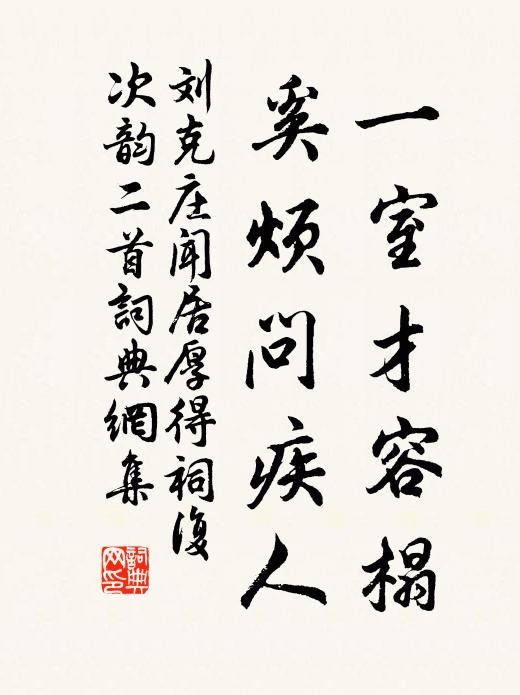 一室才容榻
奚烦问疾人
刘克庄闻居厚得祠复
次韵二首詞典網集
詞典
网印